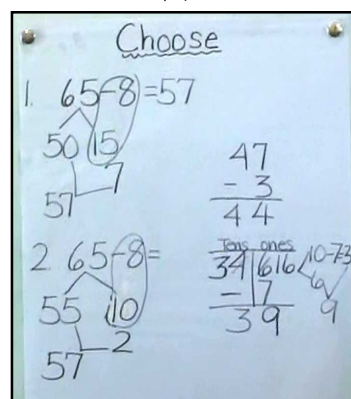 Choose
1. 65-8=57
50 15
7
57
47
- 3
44
2. 65-8=
55 10
2
57
Tens ones
34 616 10-7=3
- 7 6
39 9